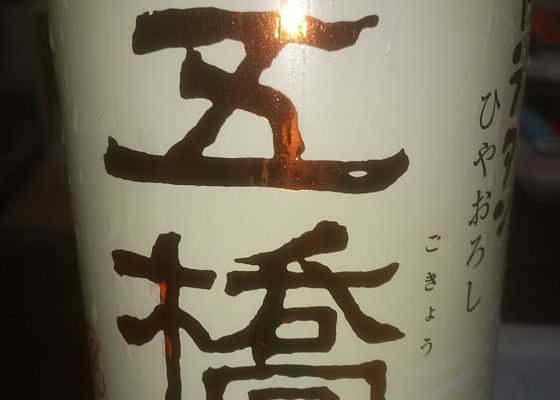 ひやおろし
五橋
ごきょう